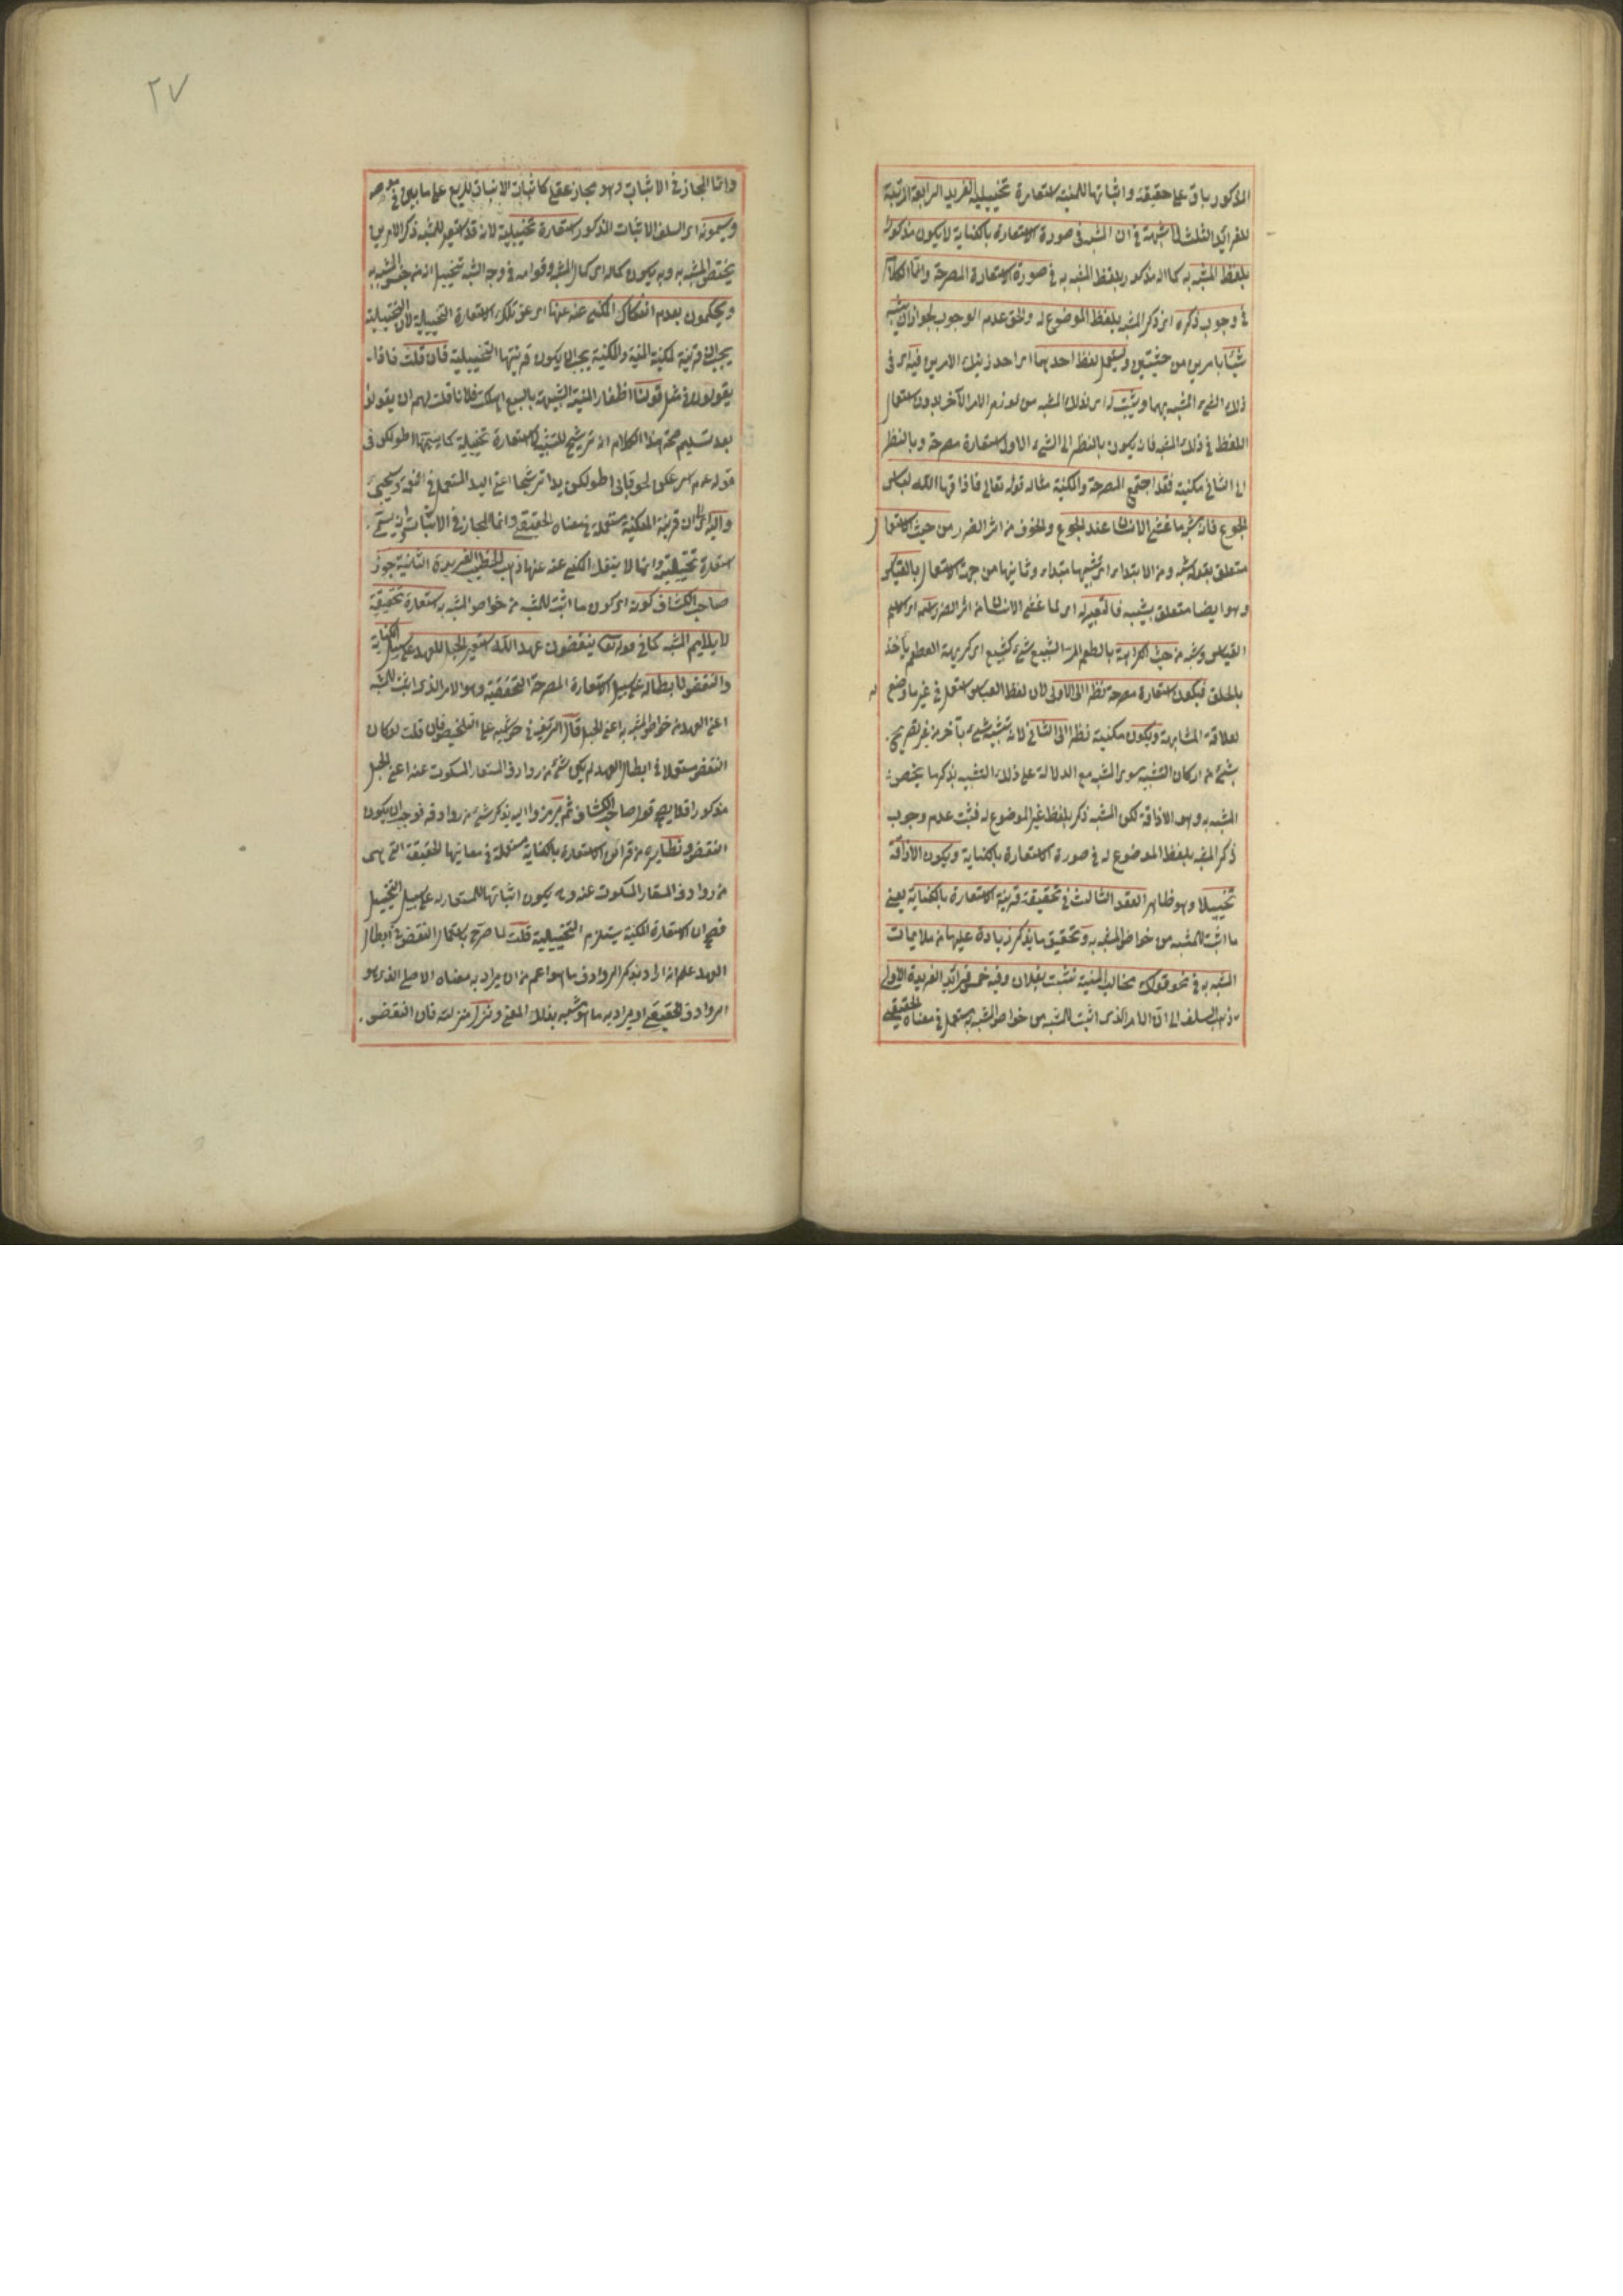 المذكور باق على حقيقته واثباتها للمنية استعارة تخييلية الفريدة الرابعة المرتبة
للفرائد الثلث لا شبهة في ان المشبه في صورة الاستعارة بالكناية لا يكون مذكورا
بلفظ المشبه به كما انه مذكور بلفظ المشبه به في صورة الاستعارة المصرحة وانما الكلام
في وجوب ذكره اى ذكر المشبه بلفظ الموضوع له والحق عدم الوجوب لجواز ان يشبه
شيئا بامرين من حيثيتين ويستعمل لفظ احدهما اى احد ذينك الامرين فيه اى في
ذلك الشئ المشبه بهما ويثبت له اى لذلك المشبه من لوازم الامر الآخر بدون استعمال
اللفظ في ذلك المشبه فانه يكون بالنظر الى الشئ الاول استعارة مصرحة وبالنظر
الى الثاني مكنية فقد اجتمع المصرحة والمكنية مثاله قوله تعالى فاذاقها الله لباس
الجوع فانه شبه ما غشى الانسان عند الجوع والخوف من اثر الضرر من حيث الاشتمال
متعلق بقوله شبه ومن الابتداء اى تشبيها مبتداء وناشيا من جهة الاشتمال باللباس
وهو ايضا متعلق بشبه فاستعير له اى لما غشى الانسان من اثر الضرر اسمه اى اسم
اللباس وشبه من حيث الكراهة بالطعم المر البشيع شئ كشيع اى كريهة الطعم يأخذ
بالحلق فيكون استعارة مصرحة نظرا الى الاولى لان لفظ اللباس استعمل في غير ما وضع له
لعلاقة المشابهة ويكون مكنية نظرا الى الثاني لانه تشبيه شئ بآخر من غير تصريح
بشئ من اركان التشبيه سوى المشبه مع الدلالة على ذلك التشبيه بذكر ما يخص
المشبه به وهو الاذاقة لكن المشبه ذكر بلفظ غير الموضوع له فثبت عدم وجوب
ذكر المشبه بلفظ الموضوع له في صورة الاستعارة بالكناية ويكون الاذاقة
تخييلا وهو ظاهر العقد الثالث في تحقيق قرينة الاستعارة بالكناية يعنى
ما اثبت للمشبه من خواص المشبه به وتحقيق ما يذكر زيادة عليها من ملايمات
المشبه به في نحو قولك مخالب المنية نشبت بفلان وفيه خمس فرائد الفريدة الاولى
ذهب السلف الى ان الامر الذى اثبت للمشبه من خواص المشبه به مستعمل في معناه الحقيقى
٢٧
وانما المجاز في الاثبات وهو مجاز عقلى كاثبات الانبات للربيع على ما بين في موضعه
ويسمونه اى السلف الاثبات المذكور استعارة تخييلية لانه قد استعير للمشبه ذكر الامر الذى
يختص بالمشبه به وبه يكون كماله اى كمال المشبه به وقوامه في وجه الشبه تخييل انه من جنس المشبه به
ويحكمون بعدم انفكاك المكنى عنه عنها اى عن تلك الاستعارة التخييلية لان التخييلية
يجب ان قرينة لمكنية المنية والمكنية يجب ان يكون قرينتها التخييلية فان قلت فماذا
يقولون في مثل قولنا اظفار المنية الشبيهة بالسبع اهلكت فلانا قلت لهم ان يقولوا
بعد تسليم صحة هذا الكلام انه ترشيح للتشبيه لا استعارة تخييلية كما يسمى اطولكن في
قوله عم اسرعكن لحوقا بى اطولكن يدا ترشيحا اعنى اليد المستعمل في النعمة وسيجئ
واليه اى الى ان قرينة المكنية مستعملة في معناه الحقيقى وانما المجاز في الاثبات وان يسمى
استعارة تخييلية وانما لا ينفك المكنى عنه عنها ذهب الخطيب الفريدة الثانية جوز
صاحب الكشاف كونه اى كون ما اثبت للمشبه من خواص المشبه به استعارة تحقيقية
لما يلايم المشبه كما في قوله تعالى ينقضون عهد الله استعير الحبل للعهد على سبيل الكناية
والنقض لابطاله على سبيل الاستعارة المصرحة التحقيقية وهو الامر الذى اثبت للمشبه
اعنى العهد من خواص المشبه به اعنى الحبل قال الشريف في حواشيه على التلخيص فان قلت لو كان
النقض مستعملا في ابطال العهد لم يكن شئ من روادف المستعار المسكوت عنه اعنى الحبل
مذكورا فلا يصح قول صاحب الكشاف ثم يرمزوا اليه بذكر شئ من روادفه فوجب ان يكون
النقض ونظائره من قرائن الاستعارة بالكناية مستعملة في معانيها الحقيقية التى هى
من روادف المستعار المسكوت عنه ويكون اثباتها للمستعار له على سبيل التخييل
فصح ان الاستعارة المكنية يستلزم التخييلية قلت لما صرح باستعمال النقض في ابطال
العهد علم انه اراد بذكر الروادف ما هو اعم من ان يراد به معناه الاصلى الذى هو
الروادف الحقيقى او يراد به ما هو مشبه بذلك المعنى ونزل منزلته فان النقض